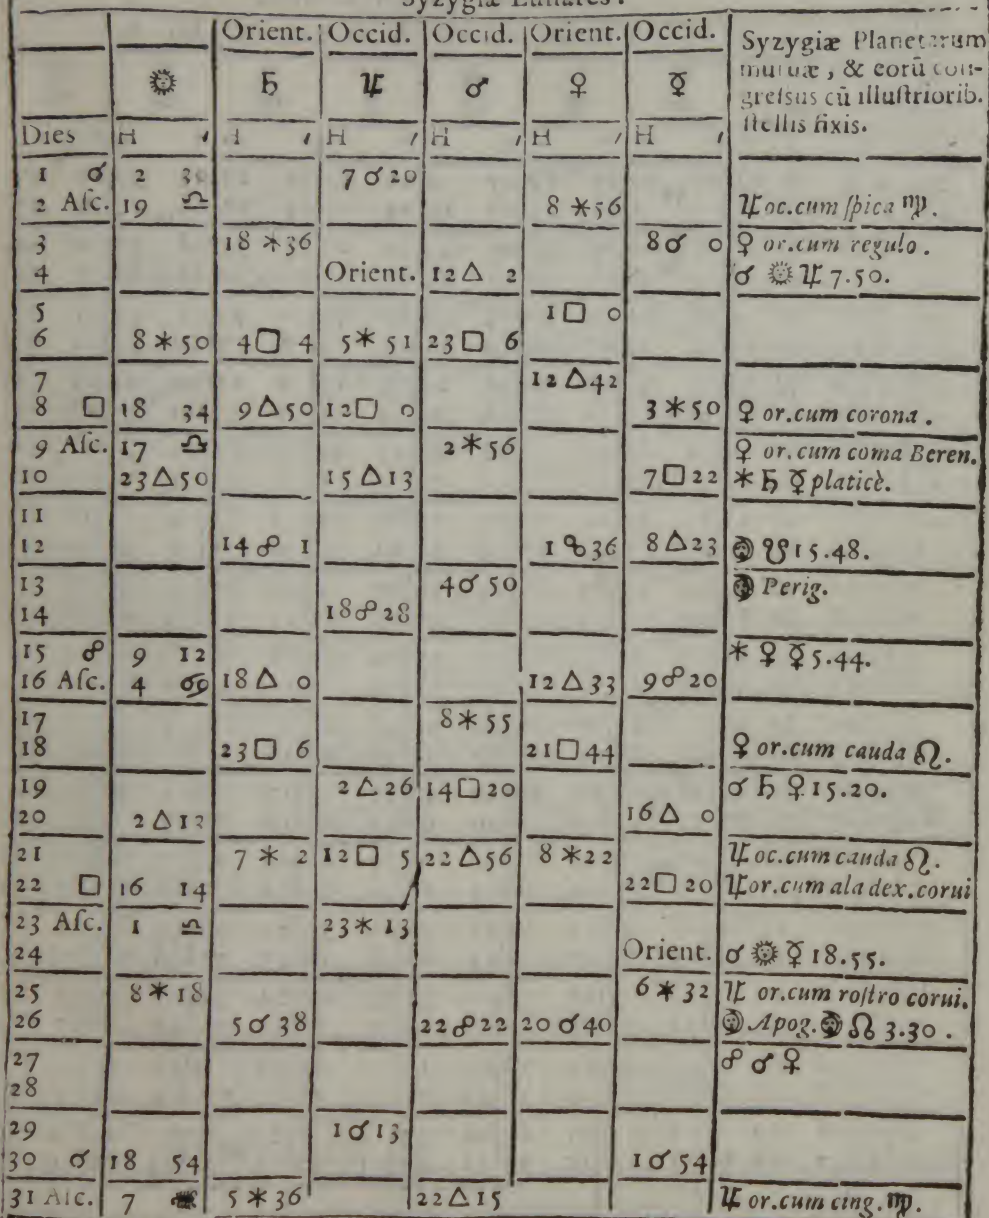 Syzygiæ Lunares.
Orient. Occid. Occid. Orient. Occid. Syzygiæ Planetarum
mutuæ, & eorū con-
☼ ♄ ♃ ♂ ♀ ☿ greſsus cū illuſtriorib.
ſtellis fixis.
Dies H ′ H ′ H ′ H ′ H ′ H ′
1 ☌ 2 30 7 ☌ 20
2 Aſc. 19 ♎ 8 ⚹ 56 ♃ oc. cum ſpica ♍.
3 18 ⚹ 36 8 ☌ 0 ♀ or. cum regulo.
4 Orient. 12 △ 2 ☌ ☼ ♃ 7.50.
5 1 □ 0
6 8 ⚹ 50 4 □ 4 5 ⚹ 51 23 □ 6
7 12 △ 42
8 □ 18 34 9 △ 50 12 □ 0 3 ⚹ 50 ♀ or. cum corona.
9 Aſc. 17 ♎ 2 ⚹ 56 ♀ or. cum coma Beren.
10 23 △ 50 15 △ 13 7 □ 22 ⚹ ♄ ☿ platicè.
11
12 14 ☍ 1 1 ☍ 36 8 △ 23 ☽ ☋ 15.48.
13 4 ☌ 50 ☽ Perig.
14 18 ☍ 28
15 ☍ 9 12 ⚹ ♀ ☿ 5.44.
16 Aſc. 4 ♋ 18 △ 0 12 △ 33 9 ☍ 20
17 8 ⚹ 55
18 23 □ 6 21 □ 44 ♀ or. cum cauda ♌.
19 2 △ 26 14 □ 20 ☌ ♄ ♀ 15.20.
20 2 △ 13 16 △ 0
21 7 ⚹ 2 12 □ 5 22 △ 56 8 ⚹ 22 ♃ oc. cum cauda ♌.
22 □ 16 14 22 □ 20 ♃ or. cum ala dex. corui
23 Aſc. 1 ♎ 23 ⚹ 13
24 Orient. ☌ ☼ ☿ 18.55.
25 8 ⚹ 18 6 ⚹ 32 ♃ or. cum roſtro corui.
26 5 ☌ 38 22 ☍ 22 20 ☌ 40 ☽ Apog. ☽ ☊ 3.30.
27 ☍ ♂ ♀
28
29 1 ☌ 13
30 ☌ 18 54 1 ☌ 54
31 Aſc. 7 5 ⚹ 36 22 △ 15 ♃ or. cum cing. ♍.